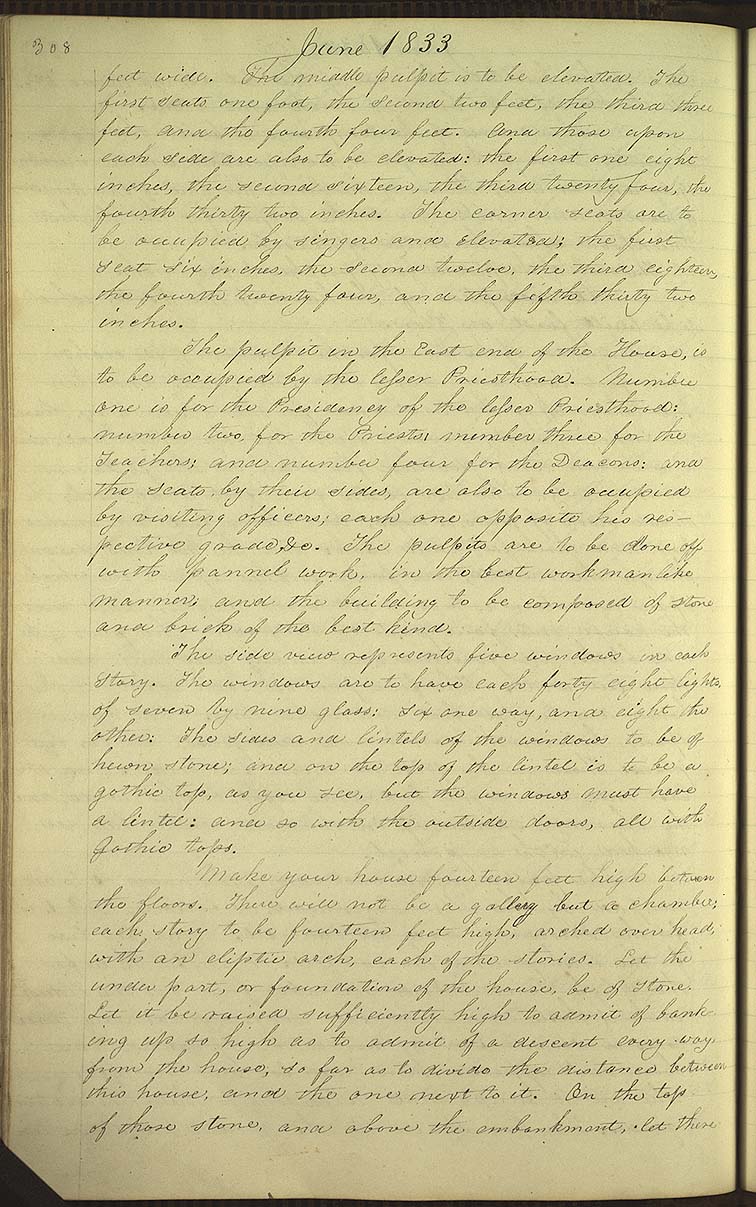 308
June 1833
feet wide. The middle pulpit is to be elevated. The
first seats one foot, the second two feet, the third three
feet, and the fourth four feet. And those upon
each side are also to be elevated: the first one eight
inches, the second sixteen, the third twenty four, the
fourth thirty two inches. The corner seats are to
be occupied by singers and elevated; the first
seat six inches, the second twelve, the third eighteen,
the fourth twenty four, and the fifth thirty two
inches.
The pulpit in the East end of the House, is
to be occupied by the lesser Priesthood. Number
one is for the Presidency of the lesser Priesthood:
number two, for the Priests; number three for the
Teachers; and number four for the Deacons: and
the seats by their sides, are also to be occupied
by visiting officers; each one opposite his res-
pective grade, &c. The pulpits are to be done off
with pannel work, in the best workmanlike
manner; and the building to be composed of stone
and brick of the best kind.
The side view represents five windows in each
story. The windows are to have each forty eight lights,
of seven by nine glass: six one way, and eight the
other: The sides and lintels of the windows to be of
hewn stone; and on the top of the lintel is to be a
gothic top, as you see, but the windows must have
a lintel: and so with the outside doors, all with
Gothic tops.
Make your house fourteen feet high between
the floors. There will not be a gallery but a chamber;
each story to be fourteen feet high, arched over head,
with an eliptic arch, each of the stories. Let the
under part, or foundation of the house, be of stone.
Let it be raised sufficiently high to admit of bank-
ing up so high as to admit of a descent every way
from the house, so far as to divide the distance between
this house, and the one next to it. On the top
of those stone, and above the embankment, let there